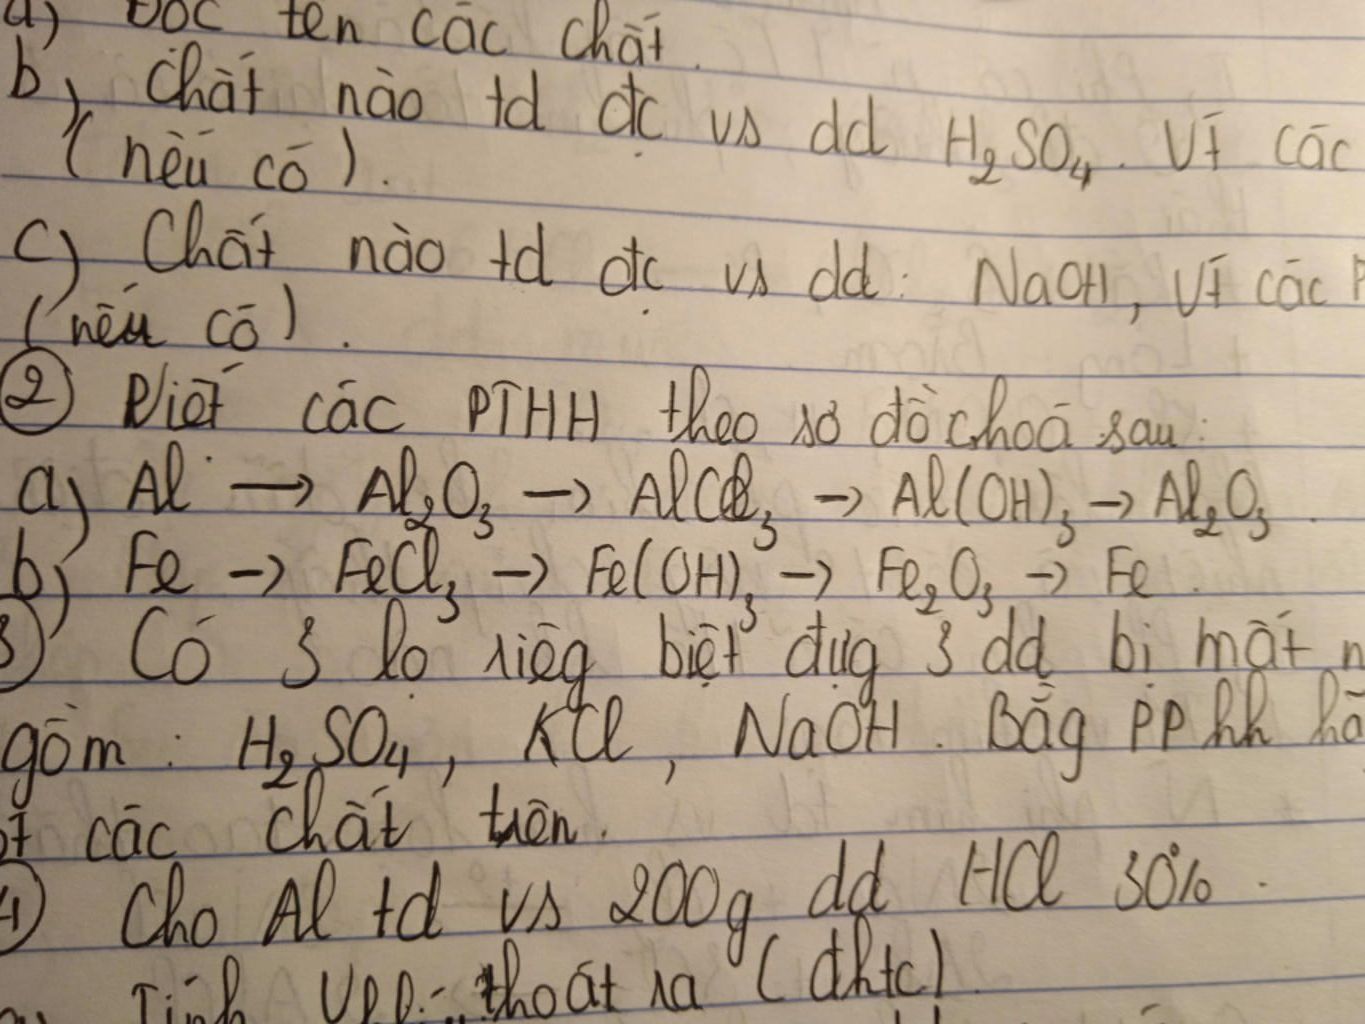 a) Đọc tên các chất.
b) Chất nào td đc vs dd H₂SO₄. Vĩ các
(nếu có).
c) Chất nào td đc vs dd: NaOH, Vĩ các P
(nếu có).
② Viết các PTHH theo sơ đồ choá sau:
a) Al → Al₂O₃ → AlCl₃ → Al(OH)₃ → Al₂O₃.
b) Fe → FeCl₃ → Fe(OH)₃ → Fe₂O₃ → Fe.
③ Có 3 lọ riêg biệt đựg 3 dd bị mất n
gồm: H₂SO₄, KCl, NaOH. Bằg PP hh hã
các chất trên.
④ Cho Al td vs 200g dd HCl 30%.
Tính thoát ra (đktc)